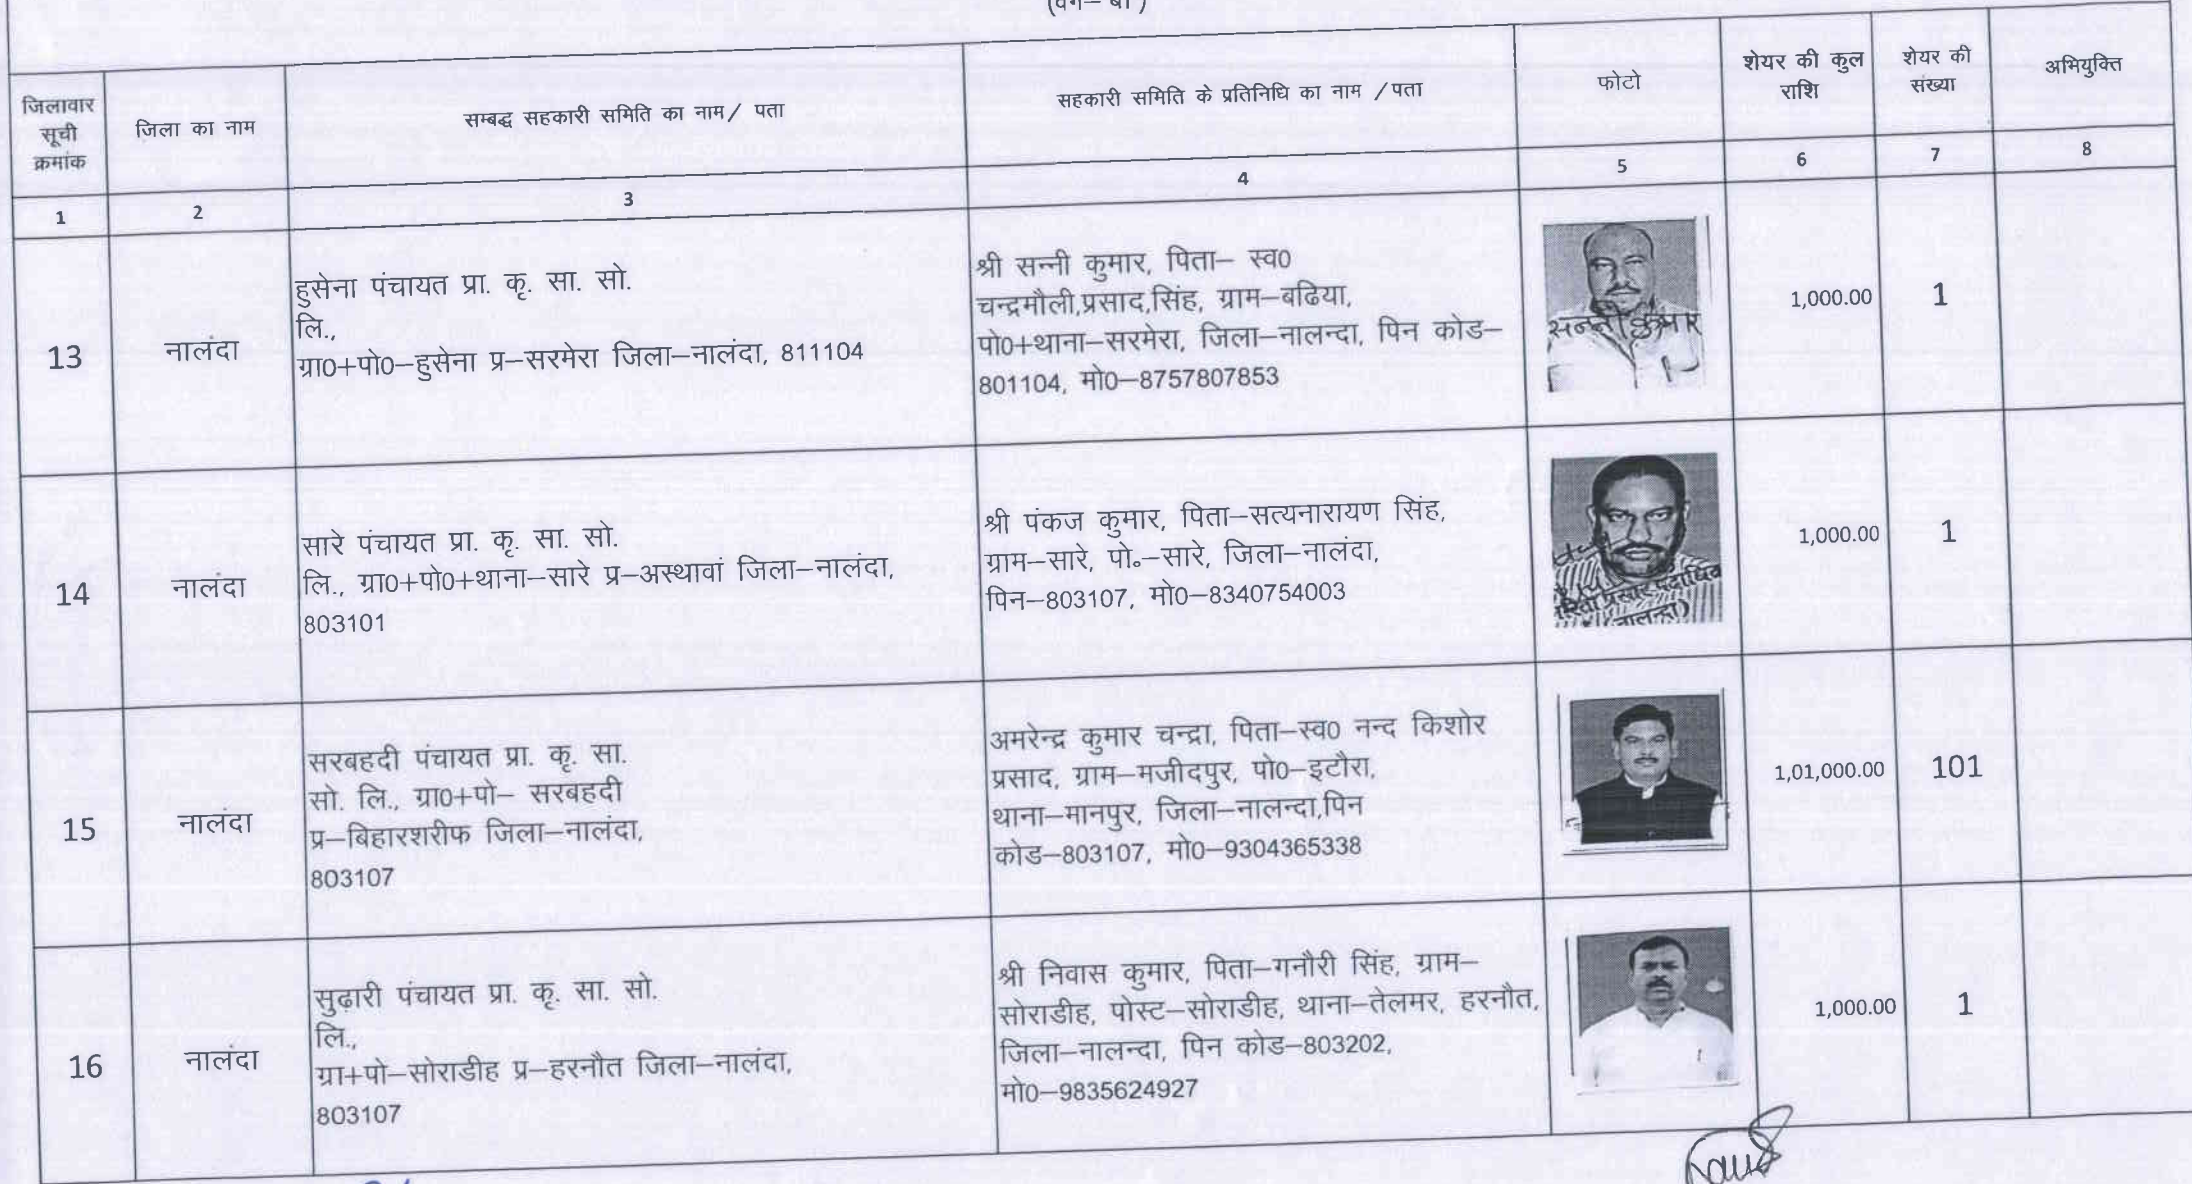 (वर्ग– बी )
जिलावार
सूची
क्रमांक
जिला का नाम
सम्बद्ध सहकारी समिति का नाम/ पता
सहकारी समिति के प्रतिनिधि का नाम /पता
फोटो
शेयर की कुल
राशि
शेयर की
संख्या
अभियुक्ति
1
2
3
4
5
6
7
8
13
नालंदा
हुसेना पंचायत प्रा. कृ. सा. सो.
लि.,
ग्रा0+पो0–हुसेना प्र–सरमेरा जिला–नालंदा, 811104
श्री सन्नी कुमार, पिता– स्व0
चन्द्रमौली,प्रसाद,सिंह, ग्राम–बढिया,
पो0+थाना–सरमेरा, जिला–नालन्दा, पिन कोड–
801104, मो0–8757807853
सन्नी कुमार
1,000.00
1
14
नालंदा
सारे पंचायत प्रा. कृ. सा. सो.
लि., ग्रा0+पो0+थाना–सारे प्र–अस्थावां जिला–नालंदा,
803101
श्री पंकज कुमार, पिता–सत्यनारायण सिंह,
ग्राम–सारे, पो॰–सारे, जिला–नालंदा,
पिन–803107, मो0–8340754003
(नालन्दा)
1,000.00
1
15
नालंदा
सरबहदी पंचायत प्रा. कृ. सा.
सो. लि., ग्रा0+पो– सरबहदी
प्र–बिहारशरीफ जिला–नालंदा,
803107
अमरेन्द्र कुमार चन्द्रा, पिता–स्व0 नन्द किशोर
प्रसाद, ग्राम–मजीदपुर, पो0–इटौरा,
थाना–मानपुर, जिला–नालन्दा,पिन
कोड–803107, मो0–9304365338
1,01,000.00
101
16
नालंदा
सुढ़ारी पंचायत प्रा. कृ. सा. सो.
लि.,
ग्रा+पो–सोराडीह प्र–हरनौत जिला–नालंदा,
803107
श्री निवास कुमार, पिता–गनौरी सिंह, ग्राम–
सोराडीह, पोस्ट–सोराडीह, थाना–तेलमर, हरनौत,
जिला–नालन्दा, पिन कोड–803202,
मो0–9835624927
1,000.00
1